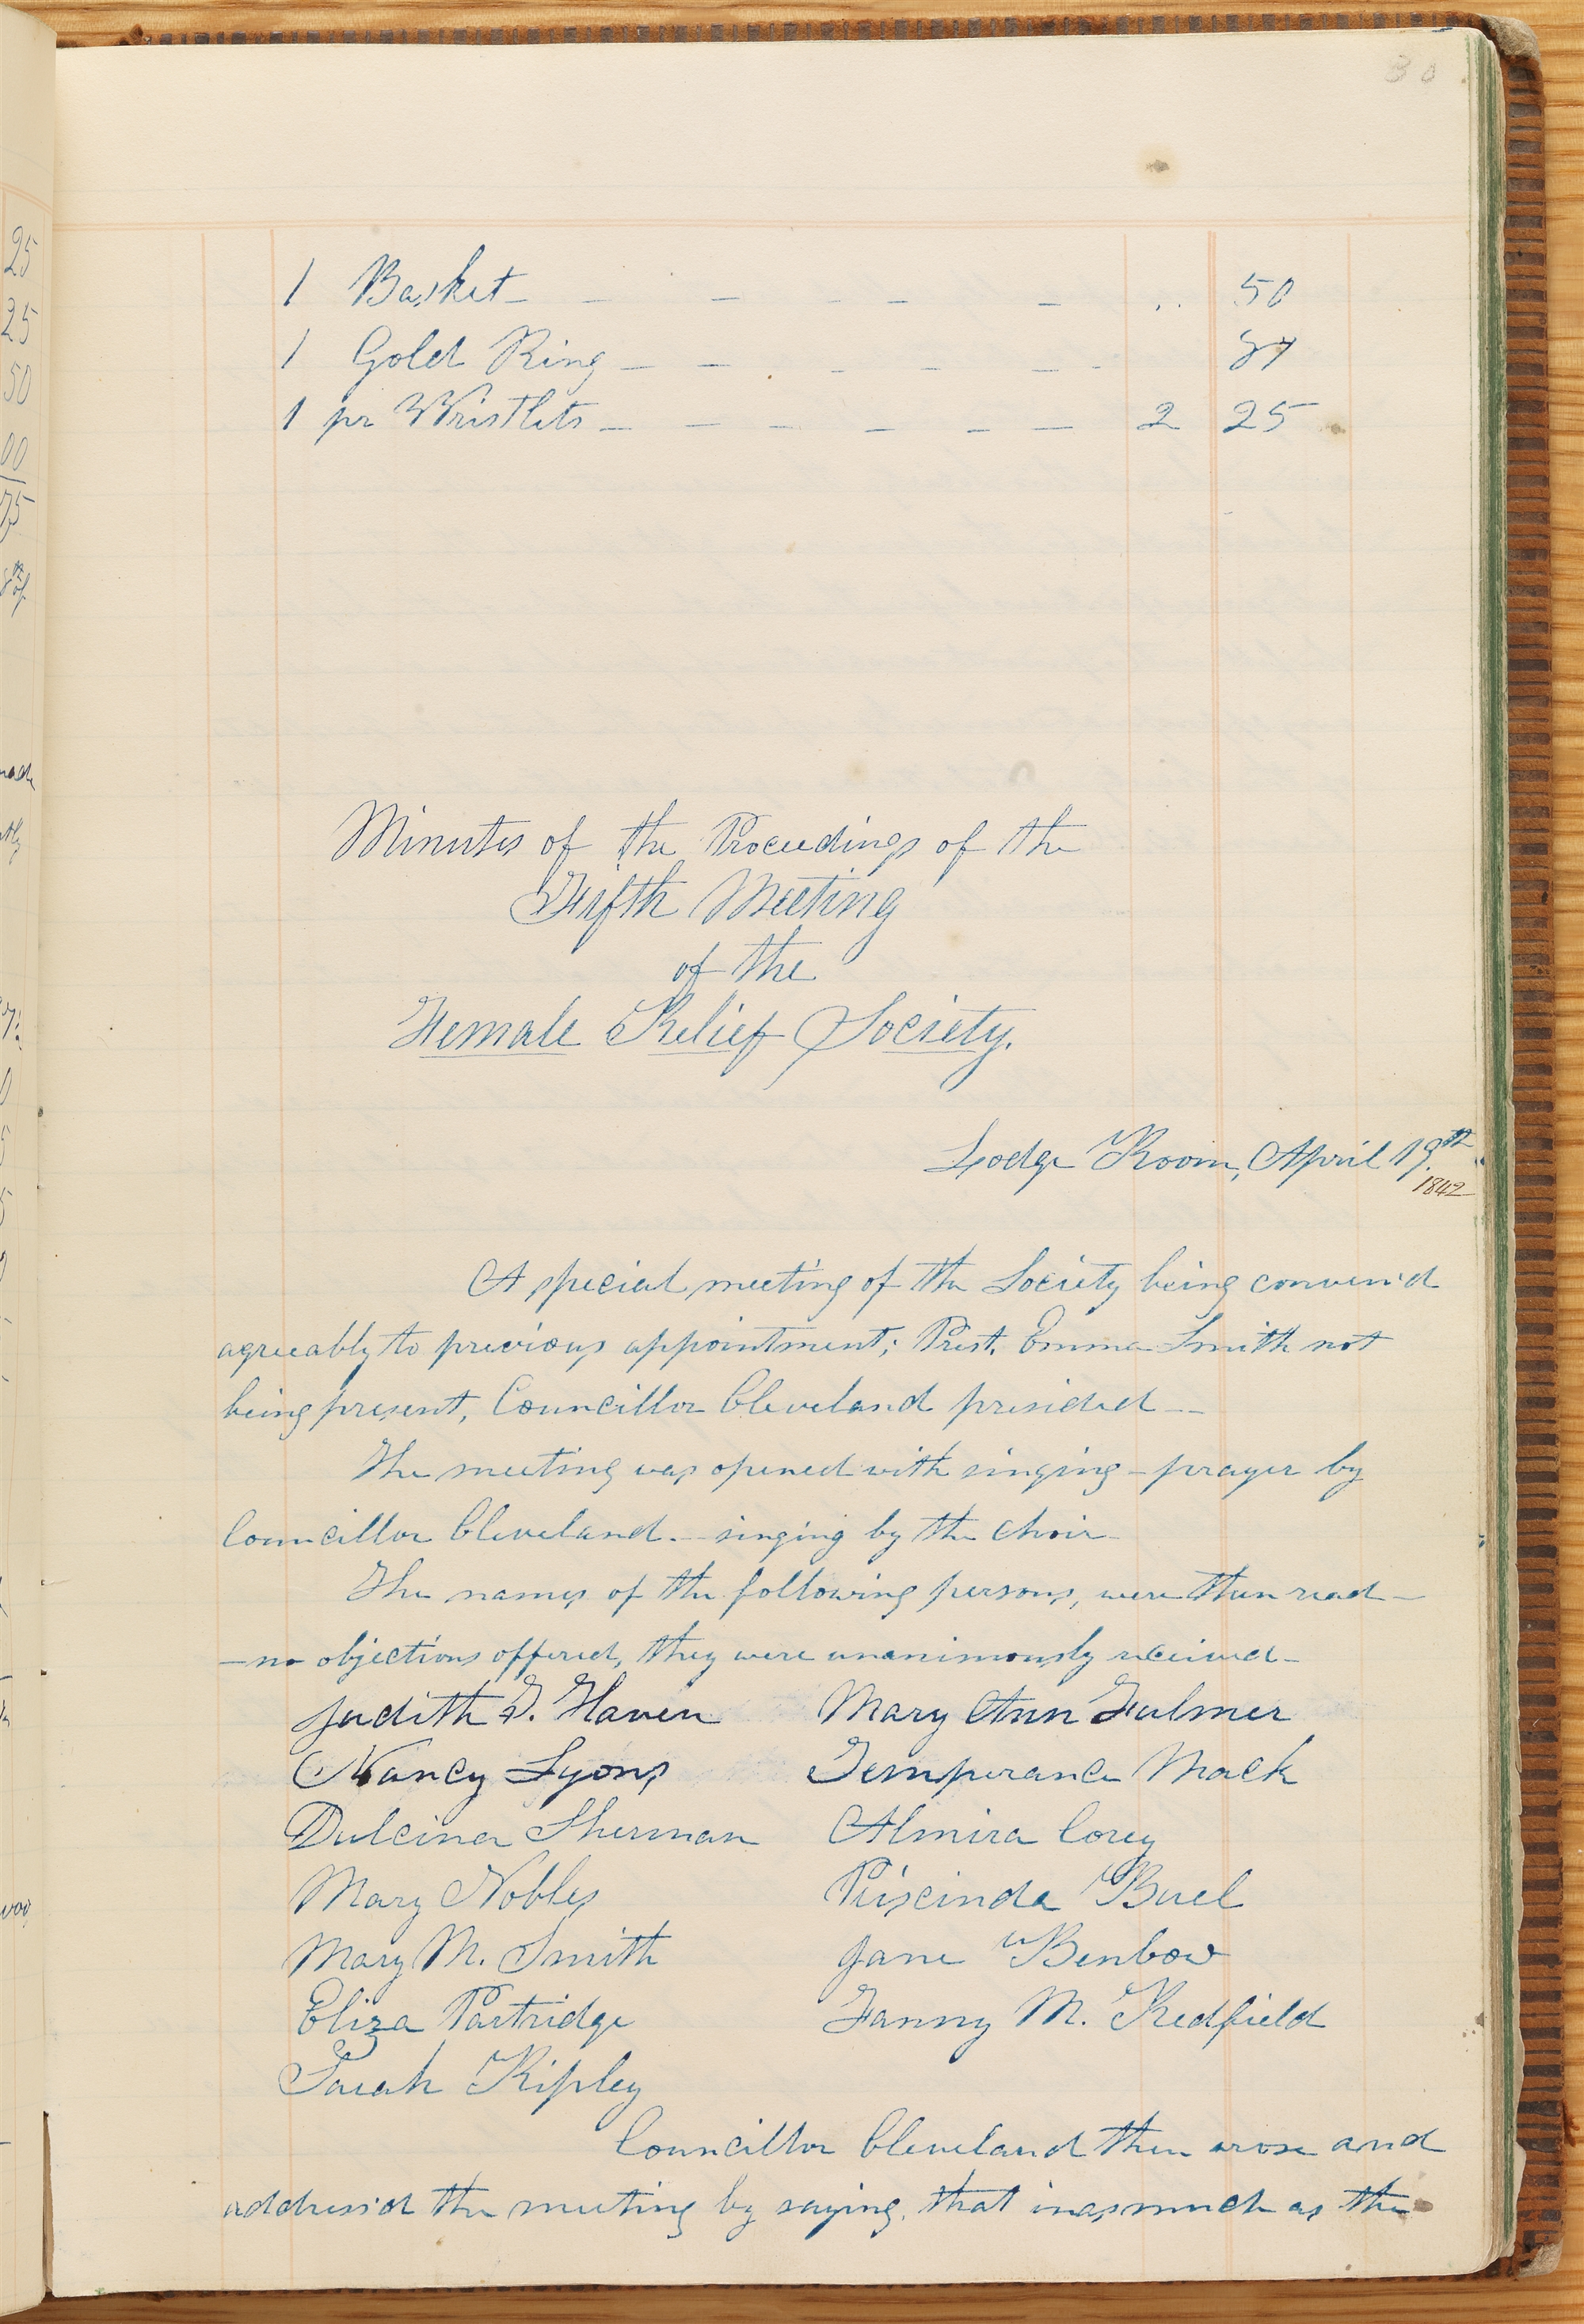 30
1 Basket - - - - - .. 50
1 Gold Ring - - - - - - 87
1 pr Wristlets - - - - - - 2 25
Minutes of the Proceedings of the
Fifth Meeting
of the
Female Relief Society.
Lodge Room, April 19.th
1842
A special meeting of the Society being conven'd
agreeably to previous appointment; Prest. Emma Smith not
being present, Councillor Cleveland presided —
The meeting was opened with singing - prayer by
Councillor Cleveland. - singing by the choir -
The names of the following persons, were then read -
- no objections offered, they were unanimously received -
Judith T. Haven Mary Ann Fulmer
Nancy Lyons Temperance Mack
Dulcina Sherman Almira Corey
Mary Nobles Priscinda Buel
Mary M. Smith Jane Benbow
Eliza Partridge Fanny M. Redfield
Sarah Ripley
Councillor Cleveland then arose and
address'd the meeting by saying, that inasmuch as the